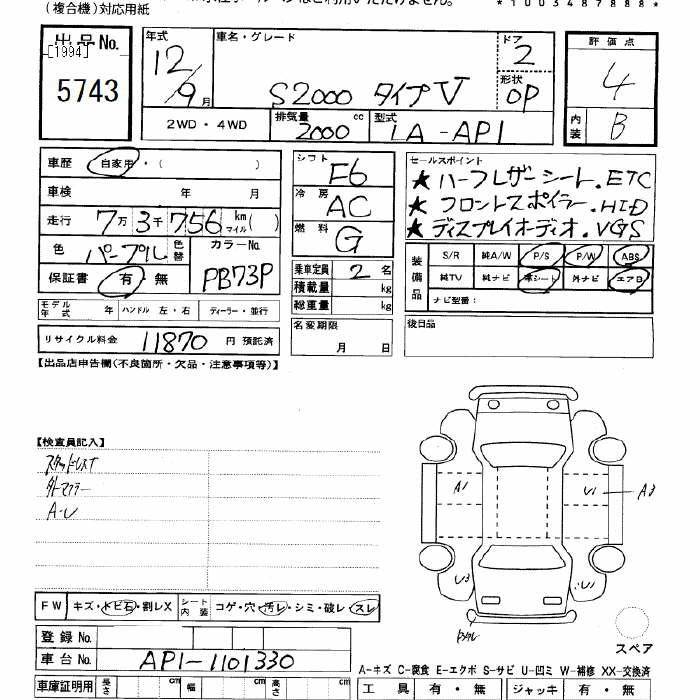 (複合機)対応用紙
*1003487888*
出品No.
[1994]
5743
年式
12/9月
車名・グレード
S2000 タイプV
ドア
2
形状
OP
評価点
4
内装
B
2WD・4WD
排気量
2000cc
型式
LA-AP1
車歴
自家用・( )
車検 年 月
走行
7万3千756km マイル( )
色
パープル
色替
カラーNo.
PB73P
保証書 有・無
モデル年式 年 ハンドル 左・右 ディーラー・並行
リサイクル料金 11870 円 預託済
シフト
F6
冷房
AC
燃料
G
乗車定員 2 名
積載量 kg
総重量 kg
名変期限
月 日
セールスポイント
★ハーフレザーシート.ETC
★フロントスポイラー.HID
★ディスプレイオーディオ.VGS
装備品
S/R 純A/W P/S P/W ABS
純TV 純ナビ 革シート 外ナビ エアB
ナビ型番:
後日品
【出品店申告欄(不良箇所・欠品・注意事項等)】
【検査員記入】
スタッドレスT
外マフラー
A-U
A1
U1
A2
U3
U1
スペア
FW キズ・トビ石・割レX
シート内装 コゲ・穴・汚レ・シミ・破レ・スレ
登録No.
車台No. AP1-1101330
A-キズ C-腐食 E-エクボ S-サビ U-凹ミ W-補修 XX-交換済
車庫証明用 長さ cm 幅 cm 高さ cm
工具 有・無 ジャッキ 有・無